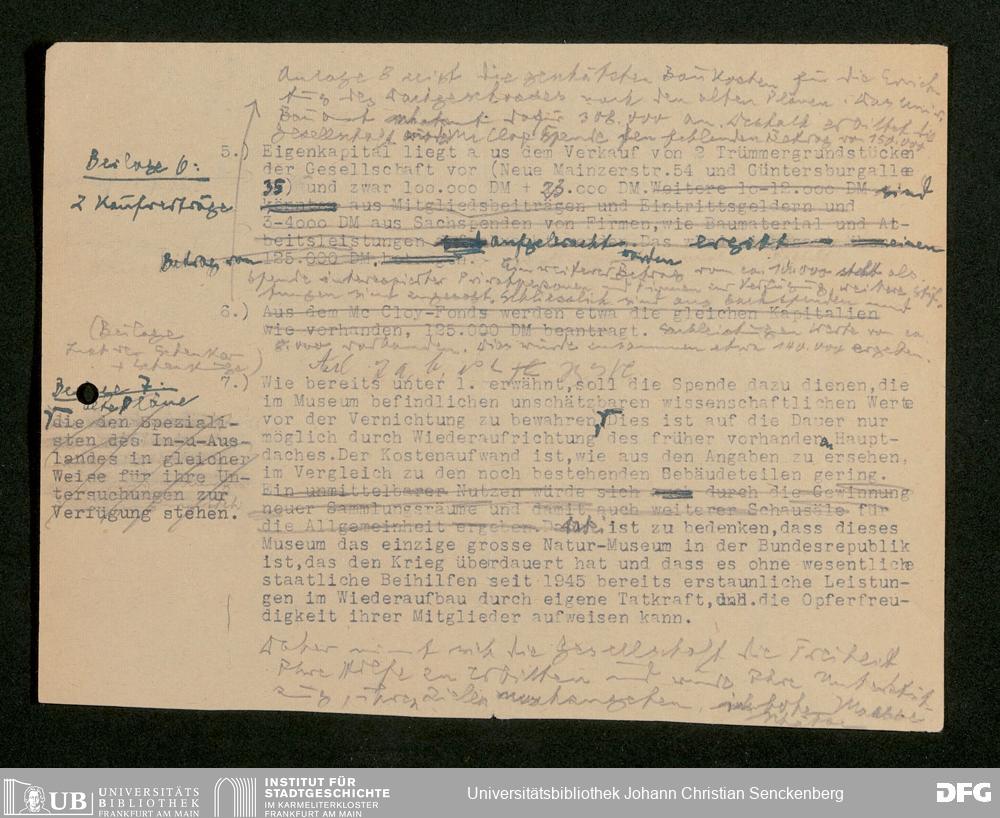 Anlage 8 zeigt die geschätzten Baukosten für die Errich-
tung des Dachgeschosses nach den alten Plänen. Das
Bauamt dafür 308.000 an. Deshalb
Gesellschaft Mc Cloy Spende den fehlenden Betrag von 150.000
Beilage 6:
2 Kaufverträge
5.) Eigenkapital liegt aus dem Verkauf von 2 Trümmergrundstücken
der Gesellschaft vor (Neue Mainzerstr.54 und Güntersburgallee
35) und zwar 100.000 DM + 23.000 DM.Weitere 10-12.000 DM sind
könnten aus Mitgliedsbeiträgen und Eintrittsgeldern und
3-4000 DM aus Sachspenden von Firmen,wie Baumaterial und Ar-
beitsleistungen aufgebracht werden. Das ergibt einen
Betrag von 125.000 DM.
Ein weiterer Betrag von ca. 10.000 steht als
Spende interessierter Privatpersonen und Firmen zur Verfügung, weitere Stif-
tungen sind zugesagt. Schliesslich sind aus Sachspenden und
6.) Aus dem Mc Cloy-Fonds werden etwa die gleichen Kapitalien
wie vorhanden, 125.000 DM beantragt. Sachleistungen Werte von ca
8.000 vorhanden. Dies würde zusammen etwa 140.000 ergeben.
(Beilage
Beilage 7:
alte Pläne
die den Speziali-
sten des In-u-Aus-
landes in gleicher
Weise für ihre Un-
tersuchungen zur
Verfügung stehen.
7.) Wie bereits unter 1. erwähnt,soll die Spende dazu dienen,die
im Museum befindlichen unschätzbaren wissenschaftlichen Werte
vor der Vernichtung zu bewahren, Dies ist auf die Dauer nur
möglich durch Wiederaufrichtung des früher vorhandenen Haupt-
daches.Der Kostenaufwand ist,wie aus den Angaben zu ersehen,
im Vergleich zu den noch bestehenden Gebäudeteilen gering.
Ein unmittelbarer Nutzen würde sich durch die Gewinnung
neuer Sammlungsräume und damit auch weiterer Schausäle für
die Allgemeinheit ergeben. ist zu bedenken,dass dieses
Museum das einzige grosse Natur-Museum in der Bundesrepublik
ist,das den Krieg überdauert hat und dass es ohne wesentliche
staatliche Beihilfen seit 1945 bereits erstaunliche Leistun-
gen im Wiederaufbau durch eigene Tatkraft,und die Opferfreu-
digkeit ihrer Mitglieder aufweisen kann.
Daher nimmt sich die Gesellschaft die Freiheit
Ihre Hilfe zu erbitten und würde Ihre Unterstüt-
zung, ihren Zielen nachzugehen, in hohem Maasse
UB UNIVERSITÄTS
BIBLIOTHEK
FRANKFURT AM MAIN
INSTITUT FÜR
STADTGESCHICHTE
IM KARMELITERKLOSTER
FRANKFURT AM MAIN
Universitätsbibliothek Johann Christian Senckenberg
DFG